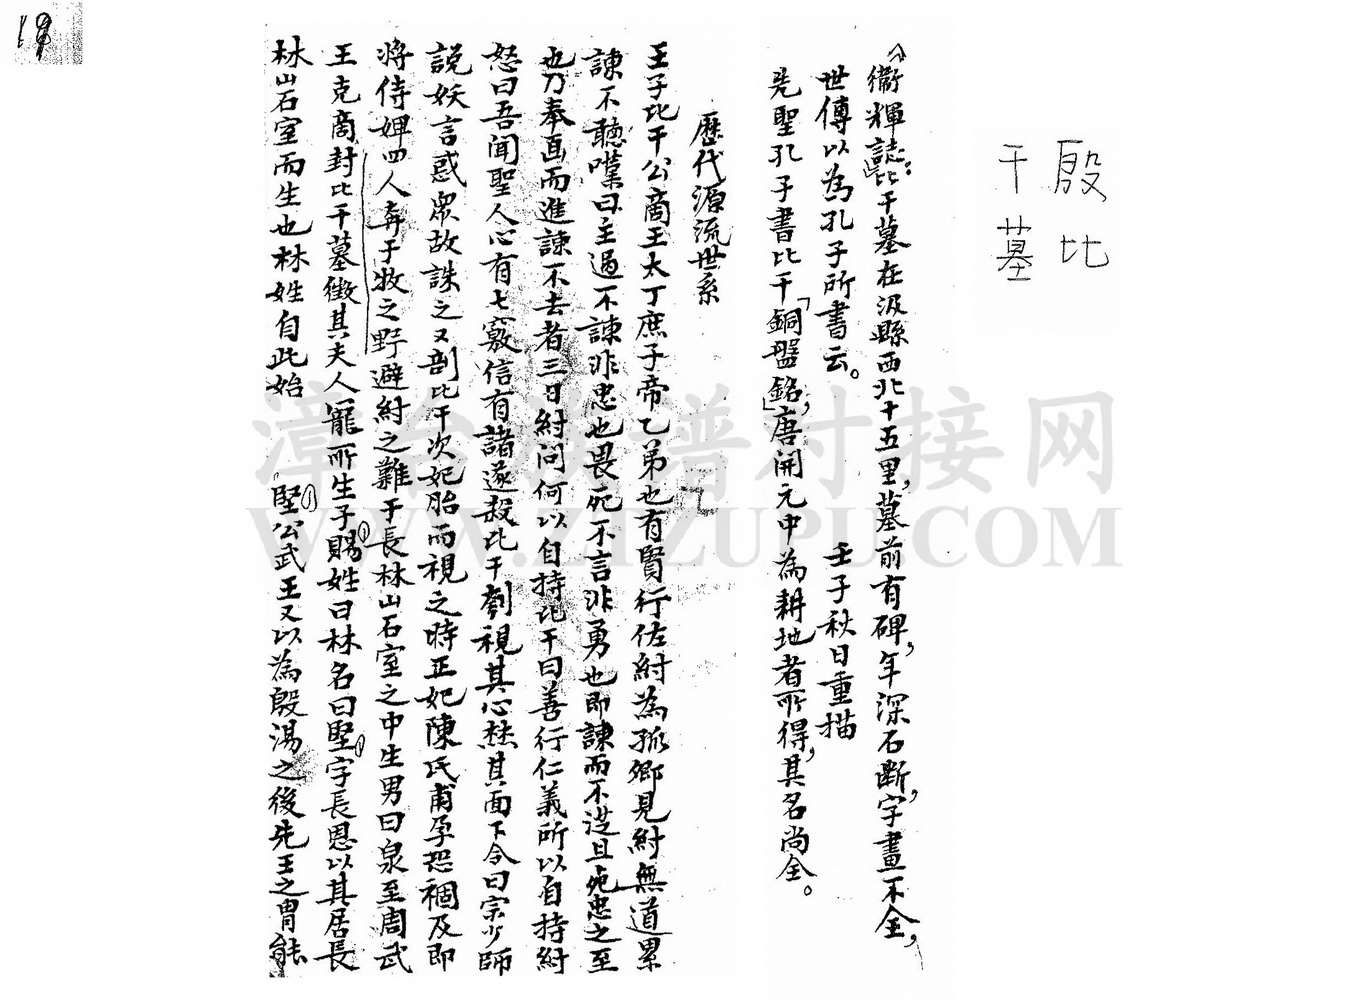 19
殷比
干墓
《衛輝誌》:比干墓在汲縣西北十五里,墓前有碑,年深石斷,字畫不全,
世傳以為孔子所書云。 壬子秋日重描
先聖孔子書比干「銅盤銘」,唐開元中為耕地者所得,其名尚全。
歷代源流世系
王子比干公商王太丁庶子帝乙弟也有賢行佐紂為孤卿見紂無道累
諫不聽嘆曰主過不諫非忠也畏死不言非勇也即諫而不從且死忠之至
也乃奉画而進諫不去者三日紂问何以自持比干曰善行仁義所以自持紂
怒曰吾聞聖人心有七竅信有諸遂殺比干剖視其心焚其面下令曰宗少師
說妖言惑眾故誅之又剖比干次妃胎而視之時正妃陳氏甫孕恐禍及即
將侍婢四人奔于牧之野避紂之難于長林山石室之中生男曰泉至周武
王克商封比干墓徵其夫人寵所生子賜姓曰林名曰堅字長恩以其居長
林山石室而生也林姓自此始 堅公武王又以為殷湯之後先王之胄能
漳台族谱对接网
WWW.ZTZUPU.COM